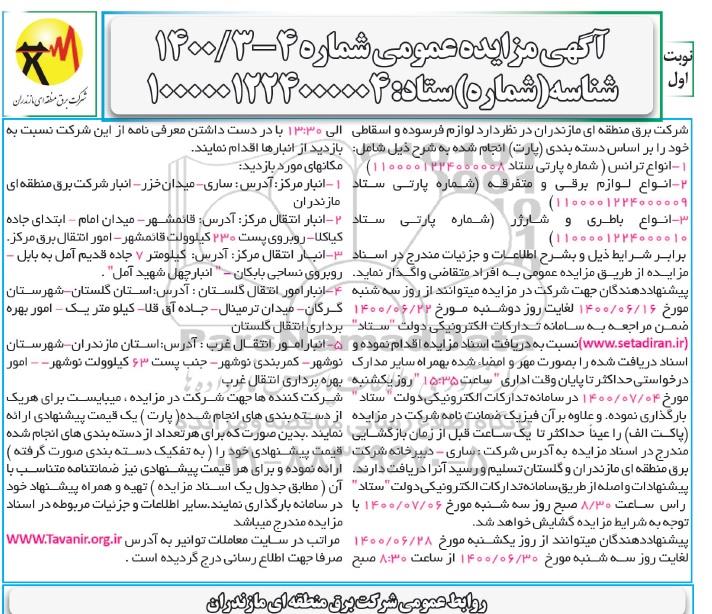 آگهی مزایده عمومی شماره ۴-۱۴۰۰/۳
شناسه (شماره) ستاد: ۱۰۰۰۰۰۱۲۲۴۰۰۰۰۰۴
نوبت
اول
شرکت برق منطقه ای مازندران
شرکت برق منطقه ای مازندران در نظر دارد لوازم فرسوده و اسقاطی
خود را بر اساس دسته بندی (پارت) انجام شده به شرح ذیل شامل:
۱-انواع ترانس ( شماره پارتی ستاد ۱۱۰۰۰۰۱۲۲۴۰۰۰۰۰۸)
۲-انواع لوازم برقی و متفرقه (شماره پارتی ستاد
۱۱۰۰۰۰۱۲۲۴۰۰۰۰۰۹)
۳-انواع باطری و شارژر (شماره پارتی ستاد
۱۱۰۰۰۰۱۲۲۴۰۰۰۰۱۰)
برابر شرایط ذیل و بشرح اطلاعات و جزئیات مندرج در اسناد
مزایده از طریق مزایده عمومی به افراد متقاضی واگذار نماید.
پیشنهاددهندگان جهت شرکت در مزایده میتوانند از روز سه شنبه
مورخ ۱۴۰۰/۰۶/۱۶ لغایت روز دوشنبه مورخ ۱۴۰۰/۰۶/۲۲
ضمن مراجعه به سامانه تدارکات الکترونیکی دولت "ستاد"
(www.setadiran.ir) نسبت به دریافت اسناد مزایده اقدام نموده و
اسناد دریافت شده را بصورت مهر و امضاء شده بهمراه سایر مدارک
درخواستی حداکثر تا پایان وقت اداری "ساعت ۱۵:۳۵" روز یکشنبه
مورخ ۱۴۰۰/۰۷/۰۴ در سامانه تدارکات الکترونیکی دولت "ستاد"
بارگذاری نموده. و علاوه برآن فیزیک ضمانت نامه شرکت در مزایده
(پاکت الف) را عیناً حداکثر تا یک ساعت قبل از زمان بازگشایی
مندرج در اسناد مزایده به آدرس شرکت : ساری - دبیرخانه شرکت
برق منطقه ای مازندران و گلستان تسلیم و رسید آنرا دریافت دارند.
پیشنهادات واصله از طریق سامانه تدارکات الکترونیکی دولت "ستاد"
راس ساعت ۸/۳۰ صبح روز سه شنبه مورخ ۱۴۰۰/۰۷/۰۶ با
توجه به شرایط مزایده گشایش خواهد شد.
پیشنهاددهندگان میتوانند از روز یکشنبه مورخ ۱۴۰۰/۰۶/۲۸
لغایت روز سه شنبه مورخ ۱۴۰۰/۰۶/۳۰ از ساعت ۸:۳۰ صبح
الی ۱۳:۳۰ با در دست داشتن معرفی نامه از این شرکت نسبت به
بازدید از انبارها اقدام نمایند.
مکانهای مورد بازدید:
۱-انبار مرکز: آدرس : ساری- میدان خزر- انبار شرکت برق منطقه ای
مازندران
۲-انبار انتقال مرکز: آدرس: قائمشهر- میدان امام - ابتدای جاده
کیاکلا- روبروی پست ۲۳۰ کیلوولت قائمشهر- امور انتقال برق مرکز.
۳-انبار انتقال مرکز: آدرس: کیلومتر ۷ جاده قدیم آمل به بابل -
روبروی نساجی بابکان - " انبار چهل شهید آمل" .
۴-انبار امور انتقال گلستان : آدرس: استان گلستان-شهرستان
گرگان- میدان ترمینال- جاده آق قلا- کیلو متر یک - امور بهره
برداری انتقال گلستان
۵- انبار امور انتقال غرب : آدرس: استان مازندران-شهرستان
نوشهر- کمربندی نوشهر- جنب پست ۶۳ کیلوولت نوشهر- - امور
بهره برداری انتقال غرب
شرکت کننده ها جهت شرکت در مزایده ، میبایست برای هریک
از دسته بندی های انجام شده( پارت ) یک قیمت پیشنهادی ارائه
نمایند .بدین صورت که برای هرتعداد از دسته بندی های انجام شده
قیمت پیشنهادی خود را ( به تفکیک دسته بندی صورت گرفته )
ارائه نموده و برای هر قیمت پیشنهادی نیز ضمانتنامه متناسب با
آن ( مطابق جدول یک اسناد مزایده ) تهیه و همراه پیشنهاد خود
در سامانه بارگذاری نمایند.سایر اطلاعات و جزئیات مربوطه در اسناد
مزایده مندرج میباشد
مراتب در سایت معاملات توانیر به آدرس WWW.Tavanir.org.ir
صرفا جهت اطلاع رسانی درج گردیده است .
روابط عمومی شرکت برق منطقه ای مازندران